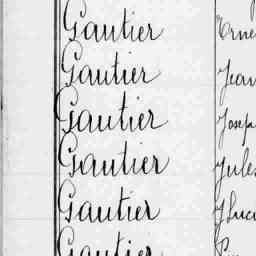 Gautier Erne
Gautier Jean
Gautier Josep
Gautier Jules
Gautier
Gautier